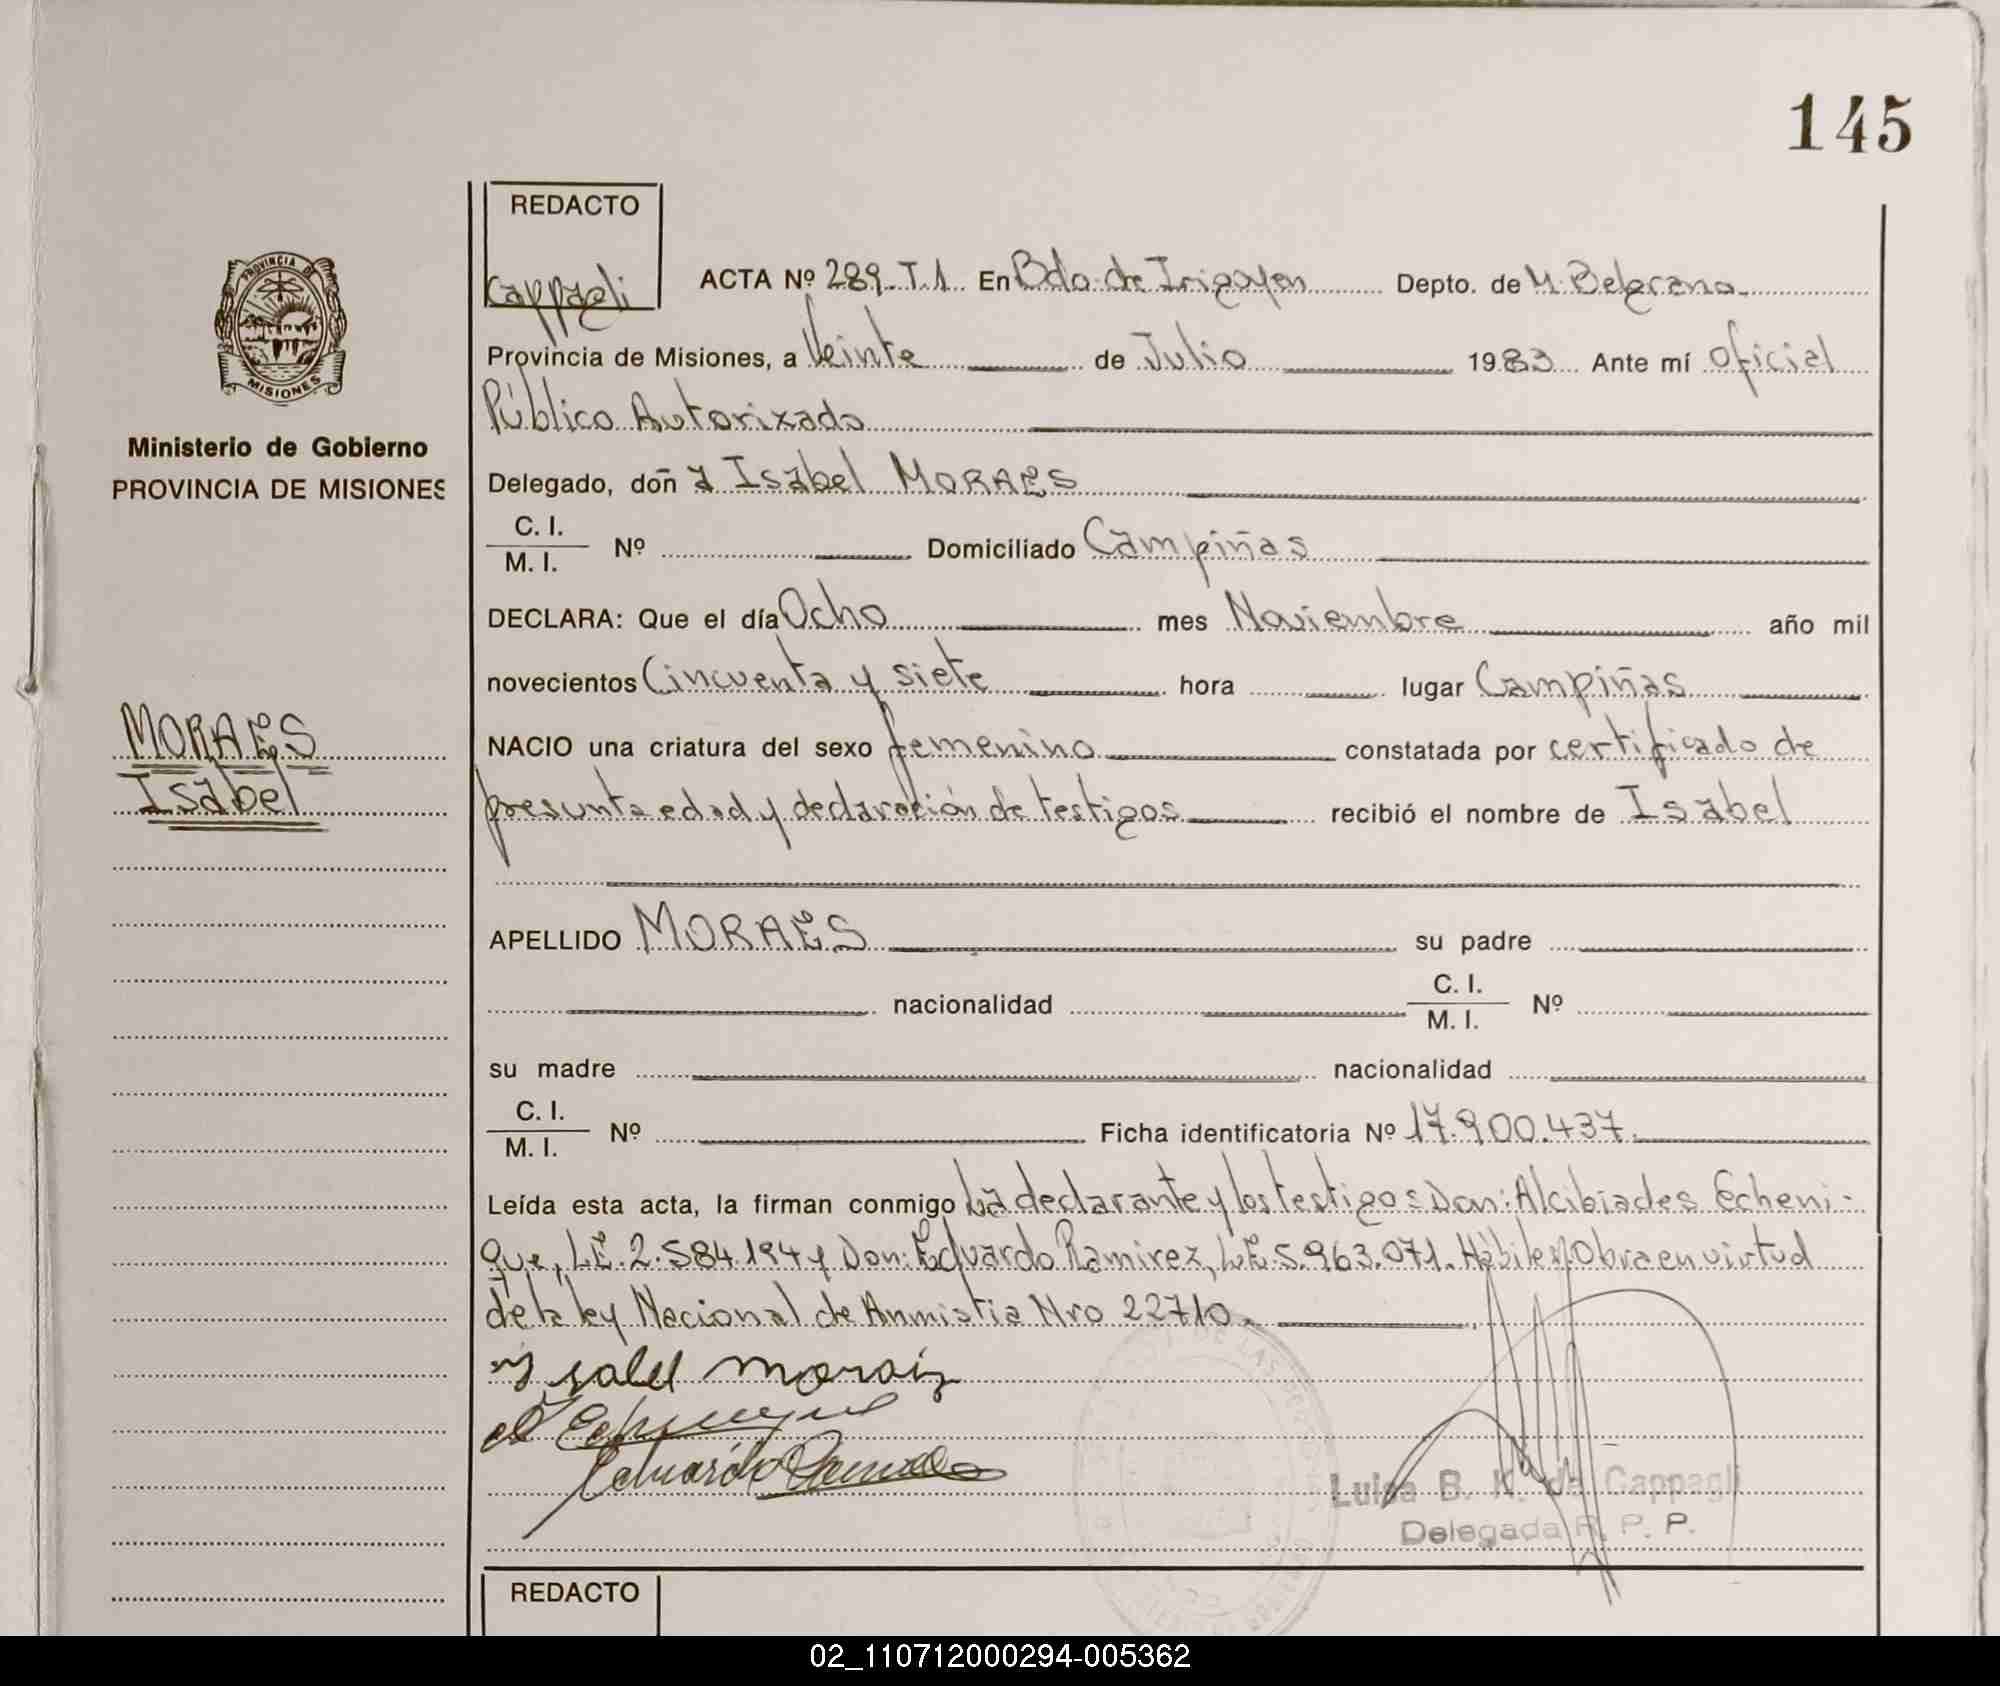 145
REDACTO
Cappagli
ACTA Nº 289. T.1. En Bdo. de Irigoyen Depto. de M. Belgrano
PROVINCIA DE
MISIONES
Provincia de Misiones, a Veinte de Julio 1983 Ante mí Oficial
Público Autorizado
Ministerio de Gobierno
PROVINCIA DE MISIONES
Delegado, doñ a Isabel MORAES
C. I.
M. I. Nº Domiciliado Campiñas
DECLARA: Que el día Ocho mes Noviembre año mil
novecientos Cincuenta y siete hora lugar Campiñas
MORAES
Isabel
NACIO una criatura del sexo femenino constatada por certificado de
presunta edad y declaración de testigos recibió el nombre de Isabel
APELLIDO MORAES su padre
nacionalidad C. I.
M. I. Nº
su madre nacionalidad
C. I.
M. I. Nº Ficha identificatoria Nº 17.900.437.
Leída esta acta, la firman conmigo La declarante y los testigos: Don: Alcibiades Echeni-
que, L.E. 2.584.194 y Don: Eduardo Ramirez, L.E. 5.963.071. Hábiles. Obra en virtud
de la ley Nacional de Anmistia Nro 22710.
Ysabel morais
A Echenique
Eduardo Ramirez
Luisa B. K. de Cappagli
Delegada R. P. P.
REDACTO
02_110712000294-005362